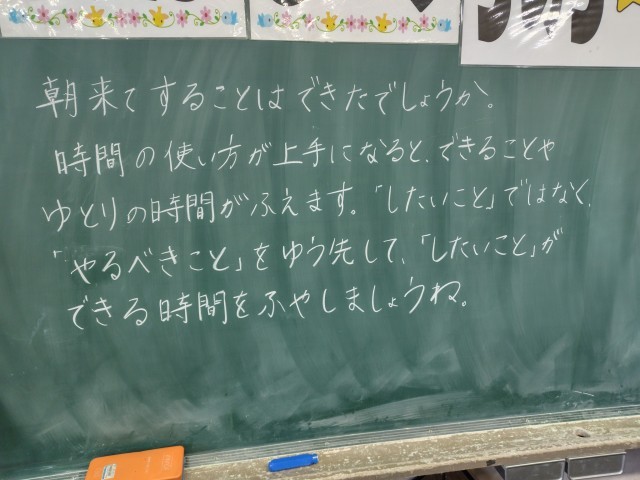 朝来てすることはできたでしょうか。
時間の使い方が上手になると、できることや
ゆとりの時間がふえます。「したいこと」ではなく、
「やるべきこと」をゆう先して、「したいこと」が
できる時間をふやしましょうね。